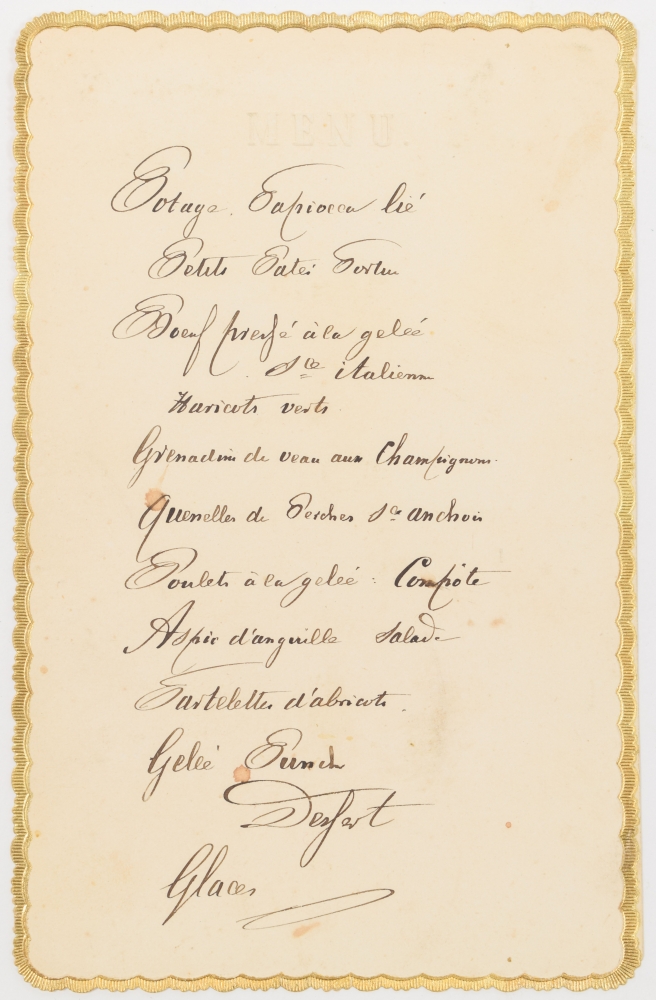 MENU.
Potage Tapiocca lié
Petits Patés
Boeuf pressé à la gelée
Sce italienne
Haricots verts
Grenadins de veau aux Champignons
Quenelles de Perches Sce anchois
Poulets à la gelée : Compôte
Aspic d'anguille Salade
Tartelettes d'abricots.
Gelée Punch
Dessert
Glaces